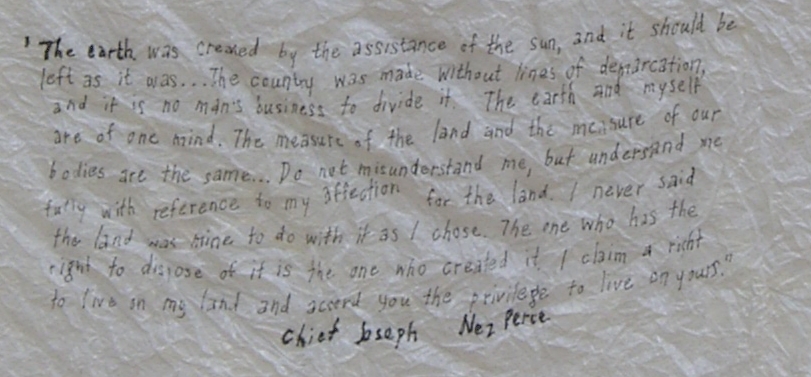 'The earth was created by the assistance of the sun, and it should be
left as it was...The country was made without lines of demarcation,
and it is no man's business to divide it. The earth and myself
are of one mind. The measure of the land and the measure of our
bodies are the same... Do not misunderstand me, but understand me
fully with reference to my affection for the land. I never said
the land was mine to do with it as I chose. The one who has the
right to dispose of it is the one who created it. I claim a right
to live on my land and accord you the privilege to live on yours."
Chief Joseph Nez Perce